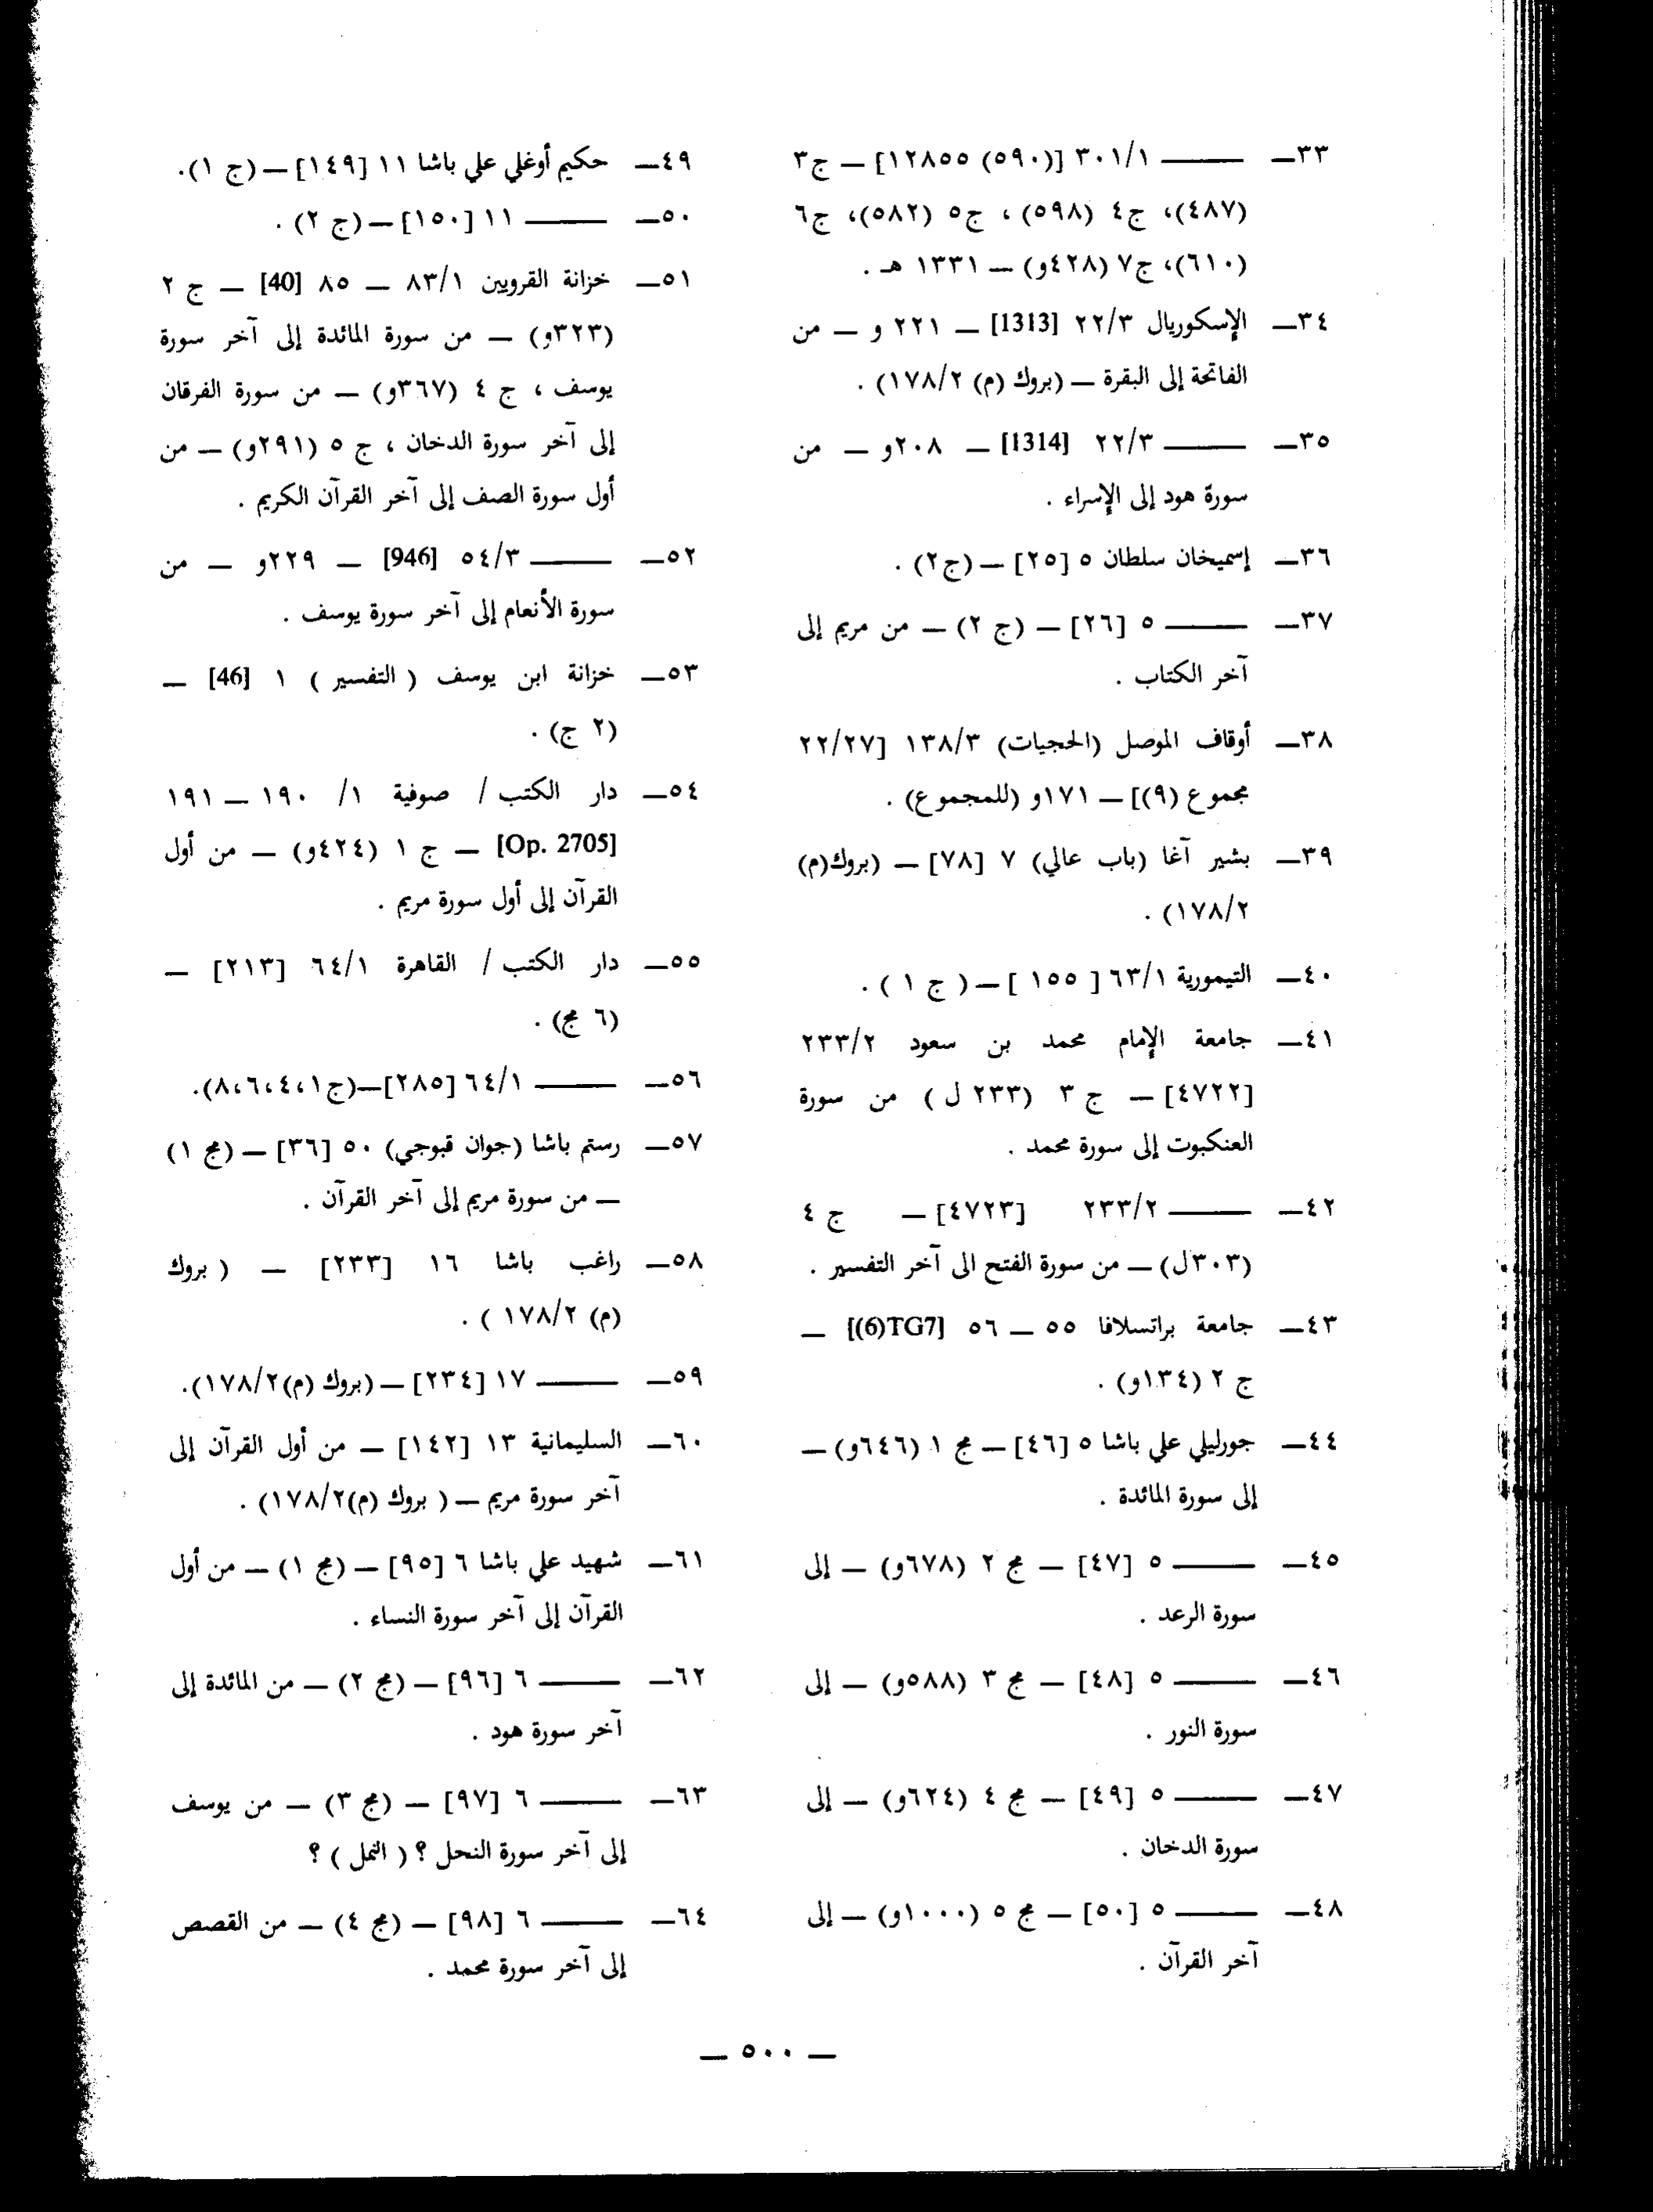 ٣٣ــ ــــــــ ٣٠١/١ [(٥٩٠) ١٢٨٥٥] ــ ج٣
(٤٨٧)، ج٤ (٥٩٨) ، ج٥ (٥٨٢)، ج٦
(٦١٠)، ج٧ (٤٢٨و) ــ ١٣٣١ هـ .
٣٤ــ الإسكوريال ٢٢/٣ [1313] ــ ٢٢١ و ــ من
الفاتحة إلى البقرة ــ (بروك (م) ١٧٨/٢) .
٣٥ــ ــــــــ ٢٢/٣ [1314] ــ ٢٠٨و ــ من
سورة هود إلى الإسراء .
٣٦ــ إسميخان سلطان ٥ [٢٥] ــ (ج٢) .
٣٧ــ ــــــــ ٥ [٢٦] ــ (ج ٢) ــ من مريم إلى
آخر الكتاب .
٣٨ــ أوقاف الموصل (الحجيات) ١٣٨/٣ [٢٢/٢٧
مجموع (٩)] ــ ١٧١و (للمجموع) .
٣٩ــ بشير آغا (باب عالي) ٧ [٧٨] ــ (بروك(م)
١٧٨/٢) .
٤٠ــ التيمورية ٦٣/١ [ ١٥٥ ] ــ ( ج ١ ) .
٤١ــ جامعة الإمام محمد بن سعود ٢٣٣/٢
[٤٧٢٢] ــ ج ٣ (٢٣٣ ل ) من سورة
العنكبوت إلى سورة محمد .
٤٢ــ ــــــــ ٢٣٣/٢ [٤٧٢٣] ــ ج ٤
(٣٠٣ل) ــ من سورة الفتح الى آخر التفسير .
٤٣ــ جامعة براتسلافا ٥٥ ــ ٥٦ [(6)TG7)] ــ
ج ٢ (١٣٤و) .
٤٤ــ جورليلي علي باشا ٥ [٤٦] ــ مج ١ (٦٤٦و) ــ
إلى سورة المائدة .
٤٥ــ ــــــــ ٥ [٤٧] ــ مج ٢ (٦٧٨و) ــ إلى
سورة الرعد .
٤٦ــ ــــــــ ٥ [٤٨] ــ مج ٣ (٥٨٨و) ــ إلى
سورة النور .
٤٧ــ ــــــــ ٥ [٤٩] ــ مج ٤ (٦٢٤و) ــ إلى
سورة الدخان .
٤٨ــ ــــــــ ٥ [٥٠] ــ مج ٥ (١٠٠٠و) ــ إلى
آخر القرآن .
٤٩ــ حكيم أوغلي علي باشا ١١ [١٤٩] ــ (ج ١).
٥٠ــ ــــــــ ١١ [١٥٠] ــ (ج ٢) .
٥١ــ خزانة القرويين ٨٣/١ ــ ٨٥ [40] ــ ج ٢
(٣٢٣و) ــ من سورة المائدة إلى آخر سورة
يوسف ، ج ٤ (٣٦٧و) ــ من سورة الفرقان
إلى آخر سورة الدخان ، ج ٥ (٢٩١و) ــ من
أول سورة الصف إلى آخر القرآن الكريم .
٥٢ــ ــــــــ ٥٤/٣ [946] ــ ٢٢٩و ــ من
سورة الأنعام إلى آخر سورة يوسف .
٥٣ــ خزانة ابن يوسف ( التفسير ) ١ [46] ــ
(٢ ج) .
٥٤ــ دار الكتب / صوفية ١/ ١٩٠ ــ ١٩١
[Op. 2705] ــ ج ١ (٤٢٤و) ــ من أول
القرآن إلى أول سورة مريم .
٥٥ــ دار الكتب / القاهرة ٦٤/١ [٢١٣] ــ
(٦ مج) .
٥٦ــ ــــــــ ٦٤/١ [٢٨٥]ــ(ج١،٤،٦،٨).
٥٧ــ رستم باشا (جوان قبوجي) ٥٠ [٣٦] ــ (مج ١)
ــ من سورة مريم إلى آخر القرآن .
٥٨ــ راغب باشا ١٦ [٢٣٣] ــ ( بروك
(م) ١٧٨/٢ ) .
٥٩ــ ــــــــ ١٧ [٢٣٤] ــ (بروك (م)١٧٨/٢).
٦٠ــ السليمانية ١٣ [١٤٢] ــ من أول القرآن إلى
آخر سورة مريم ــ ( بروك (م)١٧٨/٢) .
٦١ــ شهيد علي باشا ٦ [٩٥] ــ (مج ١) ــ من أول
القرآن إلى آخر سورة النساء .
٦٢ــ ــــــــ ٦ [٩٦] ــ (مج ٢) ــ من المائدة إلى
آخر سورة هود .
٦٣ــ ــــــــ ٦ [٩٧] ــ (مج ٣) ــ من يوسف
إلى آخر سورة النحل ؟ ( النمل ) ؟
٦٤ــ ــــــــ ٦ [٩٨] ــ (مج ٤) ــ من القصص
إلى آخر سورة محمد .
ــ ٥٠٠ ــ